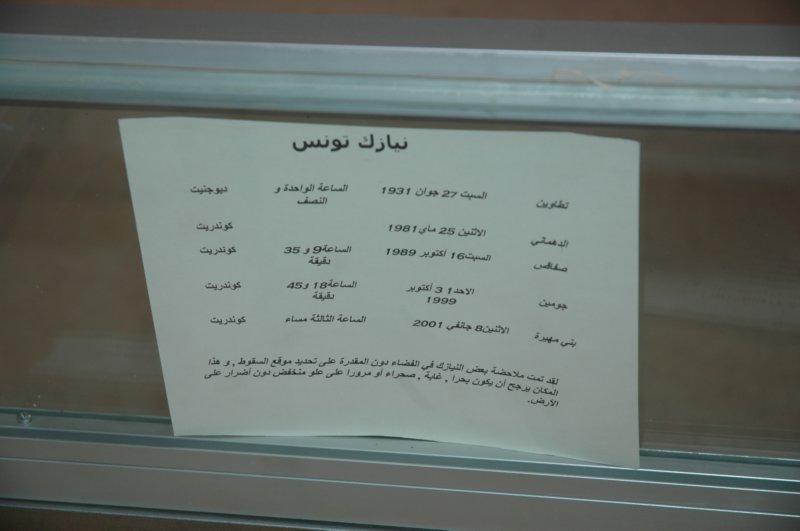 نيازك تونس
تطاوين السبت 27 جوان 1931 الساعة الواحدة و النصف ديوجنيت
الدهماني الاثنين 25 ماي1981 كوندريت
صفاقص السبت16 أكتوبر 1989 الساعة9 و 35 دقيقة كوندريت
جومين الاحد1 3 أكتوبر 1999 الساعة18 و45 دقيقة كوندريت
بني مهيرة الاثنين8 جانفي 2001 الساعة الثالثة مساء كوندريت
لقد تمت ملاحضة بعض النيازك في الفضاء دون المقدرة على تحديد موقع السقوط , و هذا
المكان يرجح أن يكون بحرا , غابة , صحراء أو مرورا على علو منخفض دون أضرار على
الأرض.